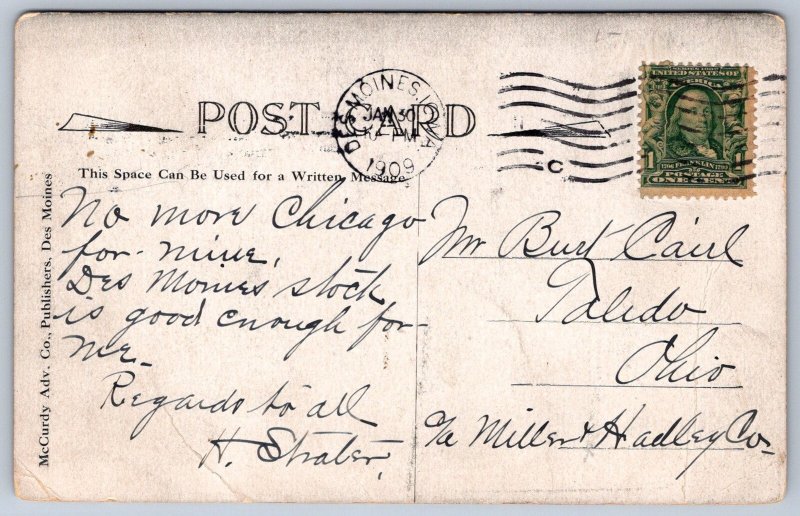 POST CARD
DES MOINES, IOWA
JAN 30
PM
1909
C
SERIES 1902
UNITED STATES OF
AMERICA
1 FRANKLIN 1
POSTAGE
ONE CENT
This Space Can Be Used for a Written Message
McCurdy Adv. Co., Publishers, Des Moines
No more Chicago
for mine,
Des Moines stock
is good enough for
me.
Regards to all
H. Strater,
Mr Burt Cairl
Toledo
Ohio
c/o Miller & Hadley Co.